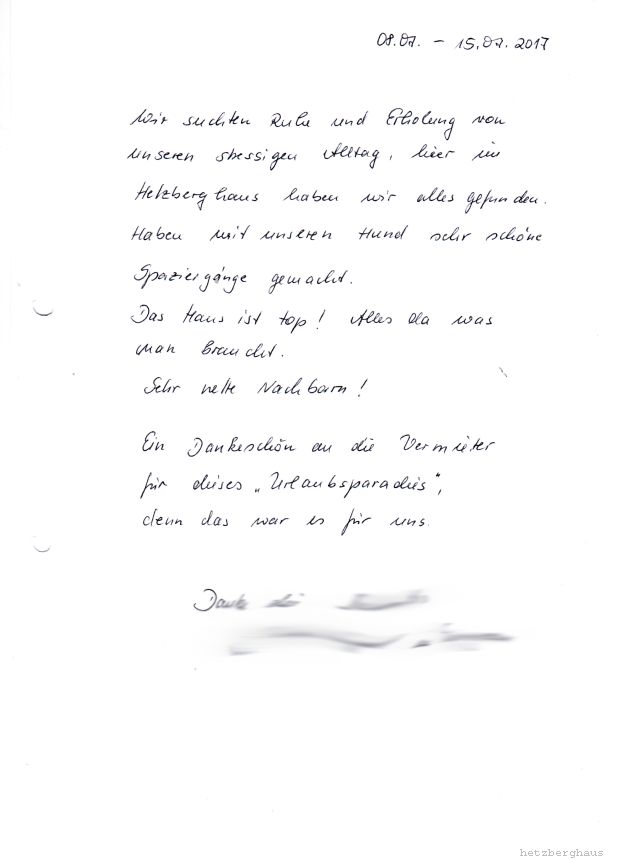 08.07. – 15.07.2017
Wir suchten Ruhe und Erholung von
unseren stressigen Alltag, hier im
Hetzberghaus haben wir alles gefunden.
Haben mit unseren Hund sehr schöne
Spaziergänge gemacht.
Das Haus ist top! Alles da was
man braucht.
Sehr nette Nachbarn!
Ein Dankeschön an die Vermieter
für dieses „Urlaubsparadies",
denn das war es für uns.
hetzberghaus